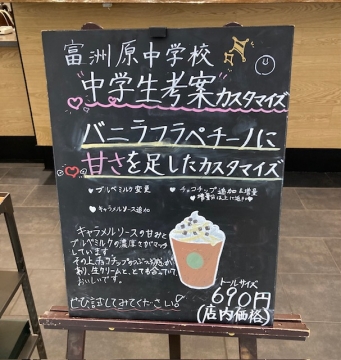 富洲原中学校
中学生考案カスタマイズ
バニラフラペチーノに
甘さを足したカスタマイズ
ブルベミルク変更
チョコチップ追加&増量
キャラメルソース追加
キャラメルソースの甘みと
ブルベミルクの濃厚さがマッチ
しています。
その上、チョコチップの
あり、生クリームと、とても合っていて、
おいしいです。
ぜひ試してみてください!
トールサイズ
690円
(店内価格)